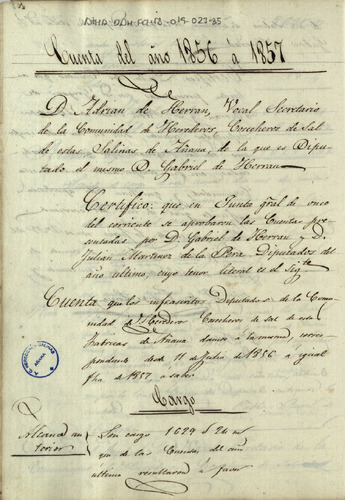 Cuenta del año 1856 á 1857
D. Adrian de Herran, Vocal Secretario
de la Comunidad de Herederos, Cosecheros de Sal
de estas Salinas de Añana, de la que es Dipu-
tado el mismo D. Gabriel de Herran
Certifico: que en Junta gral de once
del corriente se aprobaron las Cuentas pre-
sentadas por D. Gabriel de Herran y D.
Julian Martinez de la Pera Diputados del
año ultimo, cuyo tenor literal es el sigte
Cuenta que los infrascritos Diputados de la Comu-
nidad de Herederos Cosecheros de Sal de esta
Fabricas de Añana damos á la misma, corres-
pondiente desde 11 de Julio de 1856 á igual
fha de 1857, a saber
Cargo
Alcance an-
terior
Son cargo 1629 24
que de las Cuentas del año
ultimo resultaron á favor